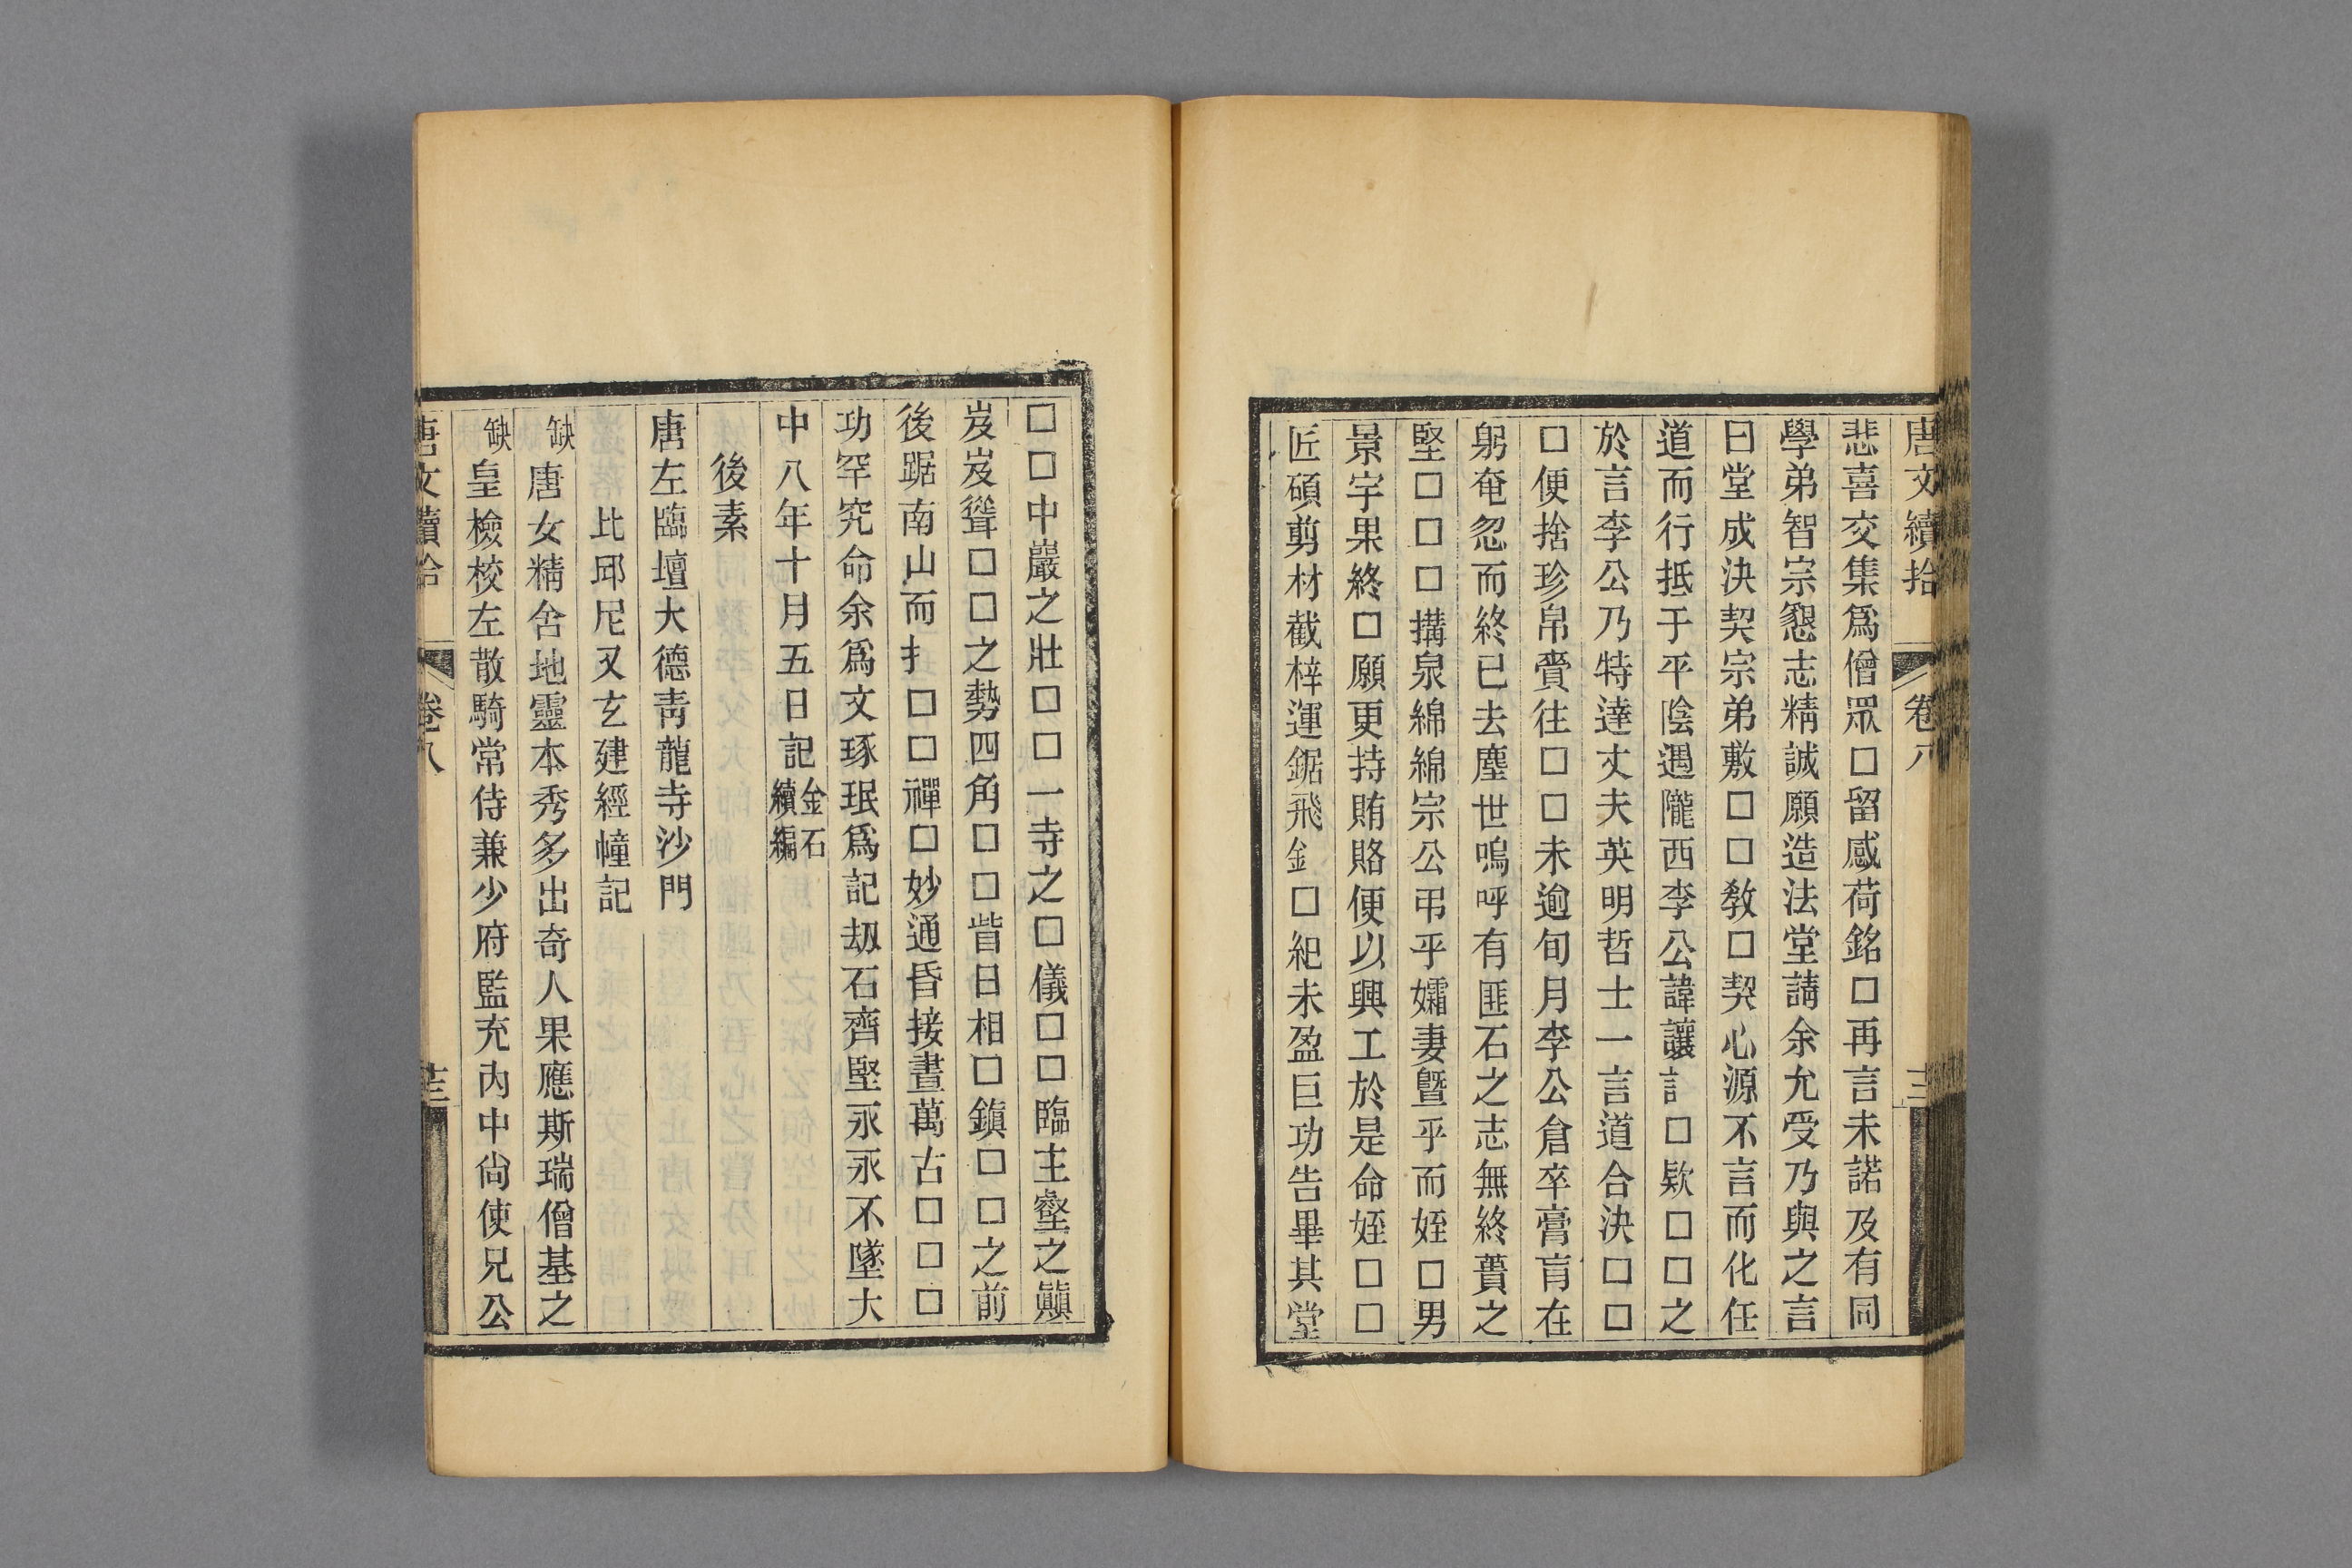 唐文續拾 卷八 三
悲喜交集爲僧眾□留感荷銘□再言未諾及有同
學弟智宗懇志精誠願造法堂請余允受乃與之言
曰堂成決契宗弟敷□□教□契心源不言而化任
道而行抵于平陰遇隴西李公諱讓言□欵□□之
於言李公乃特達丈夫英明哲士一言道合決□□
□便捨珍帛賷往□□未逾旬月李公倉卒膏肓在
躬奄忽而終已去塵世嗚呼有匪石之志無終蕢之
堅□□□搆泉綿綿宗公弔乎孀妻曁乎而姪□男
景宇果終□願更持賄賂便以興工於是命姪□□
匠碩剪材截梓運鋸飛釒□紀未盈巨功告畢其堂
□□中巖之壯□□一寺之□儀□□臨主壑之巔
岌岌聳□□之勢四角□□皆日相□鎮□□之前
後踞南山而扌□□禪□妙通昏接晝萬古□□□
功罕究命余爲文琢珉爲記刼石齊堅永永不墜大
中八年十月五日記金石續編
後素
唐左臨壇大德靑龍寺沙門
比邱尼叉玄建經幢記
缺唐女精舍地靈本秀多出奇人果應斯瑞僧基之
缺皇檢校左散騎常侍兼少府監充內中尙使兄公
唐文續拾 卷八